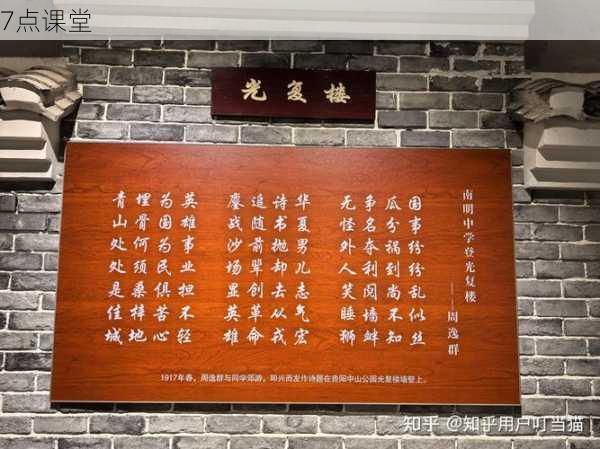 7点课堂
光复楼
南明中学登光复楼
——周逸群
国事纷纷乱似丝
瓜分祸到尚不知
争名夺利阋墙衅
无怪外人笑睡狮
华夏男儿志气宏
诗书抛却去从戎
追随前辈创革命
鏖战沙场显英雄
英雄事业担不轻
为国为民俱苦心
埋骨何须桑梓地
青山处处是佳城
1917年春，周逸群与同学郊游，即兴而发作诗题在贵阳中山公园光复楼墙壁上。
知乎 @知乎用户叮当猫